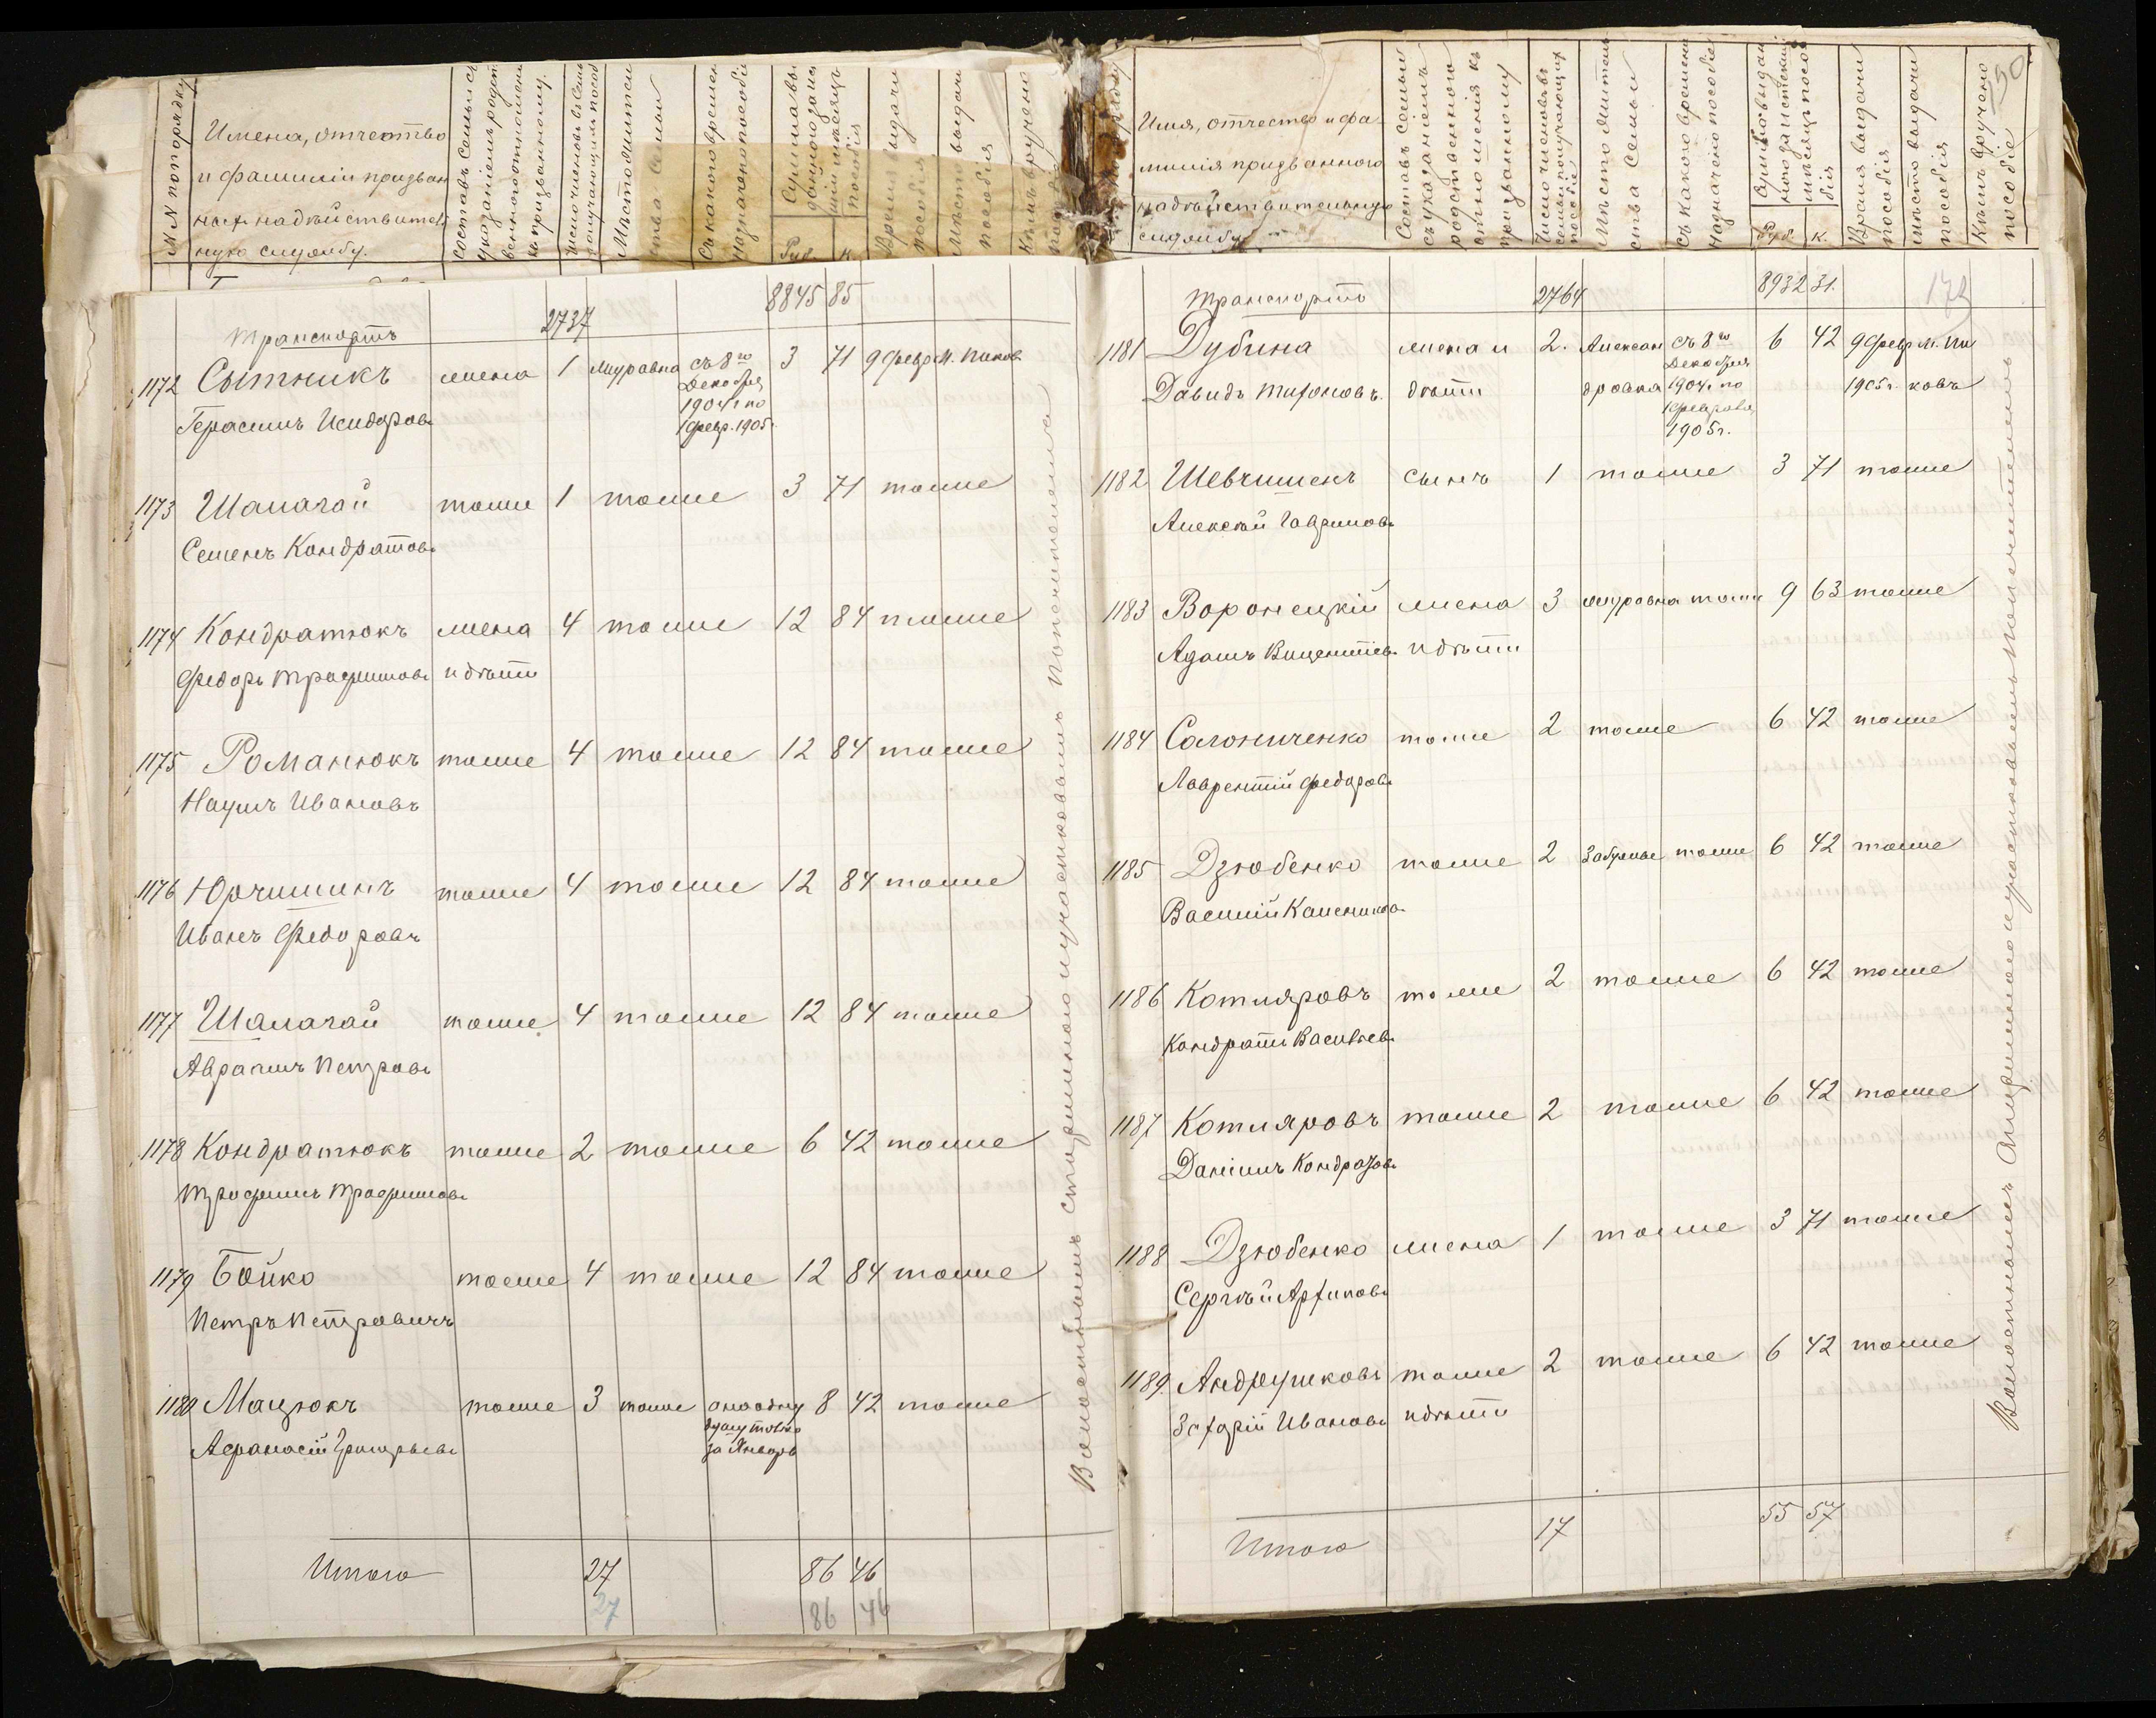 №№ по порядку
Имена, отчество
и фамиліи призван
на дѣйствитель
ную службу.
Составъ семьи съ
указаніемъ родст
веннаго отношенія
къ призванному.
Число членовъ въ семь
получающихъ пособ
Мѣсто житель
ства семьи
Съ какого времен
назначено пособіе
Сумма
пособія
Руб. К.
Время выдачи
пособія
Мѣсто выдачи
пособія
Кому вручено
Транспортъ 2737 8845 85
1172 Сытникъ жена 1 Журавна съ 8го 3 71 9 февр. м. Пиков
Декабря
1904 г. по
Герасимъ Исидоровъ 1 февр. 1905 г.
1173 Шалагай тоже 1 тоже 3 71 тоже
Семенъ Кондратовъ
1174 Кондратюкъ жена 4 тоже 12 84 тоже
Федоръ Трофимовъ и дѣти
1175 Романюкъ тоже 4 тоже 12 84 тоже
Наумъ Ивановъ
1176 Юрчишинъ тоже 4 тоже 12 84 тоже
Иванъ Федоровъ
1177 Шалагай тоже 4 тоже 12 84 тоже
Аврамъ Петровъ
1178 Кондратюкъ тоже 2 тоже 6 42 тоже
Трофимъ Трофимовъ
1179 Бойко тоже 4 тоже 12 84 тоже
Петръ Петровичъ
1180 Мацюкъ тоже 3 тоже на одну 8 42 тоже
душу только
за Январь
Афанасій Григорьевъ
Итого 27 86 46
27 86 46
Волостнымъ старшиною и участковымъ попечителемъ
50
Имя, отчество и фа
милія призваннаго
на дѣйствительную
службу
Составъ семьи
съ указаніемъ
родственнаго
отношенія къ
призванному
Число членовъ въ
семьи получающих
пособіе
Мѣсто житель
ства семьи
Съ какого времени
назначено пособіе
мѣсяцъ посо
бія
Руб. К.
Время выдачи
пособія
мѣсто выдачи
пособія
Кѣмъ вручено
пособіе
Транспортъ 2764 8932 31.
1181 Дубина жена и 2. Алексан съ 8го 6 42 9 февр. м. Пи
Декабря
Давидъ Тихоновъ. дѣти дровка 1904 г. по 1905 г. ковъ
1 февраля
1905 г.
1182 Шевчишенъ сынъ 1 тоже 3 71 тоже
Алексѣй Гавриловъ
1183 Воронецкій жена 3 Журавна тоже 9 63 тоже
Адамъ Викентіев. и дѣти
1184 Солониченко тоже 2 тоже 6 42 тоже
Лаврентій Федоровъ
1185 Дзюбенко тоже 2 тоже 6 42 тоже
Василій Калениковъ
1186 Котляровъ тоже 2 тоже 6 42 тоже
Кондратъ Васильевъ
1187 Котляровъ тоже 2 тоже 6 42 тоже
Даніилъ Кондратовъ
1188 Дзюбенко жена 1 тоже 3 71 тоже
Сергѣй Архиповъ
1189 Андрушковъ тоже 2 тоже 6 42 тоже
Захарій Ивановъ и дѣти
Итого 17 55 57
Волостнымъ старшиною и участковымъ попечителемъ